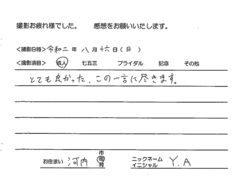 撮影お疲れ様でした。 感想をお願いいたします。
<撮影日時> 令和二年 八月十六日(日)
<撮影項目> 成人 七五三 ブライダル 記念 その他
とても良かった、この一言に尽きます。
市
お住まい 河内 ニックネーム イニシャル Y.A